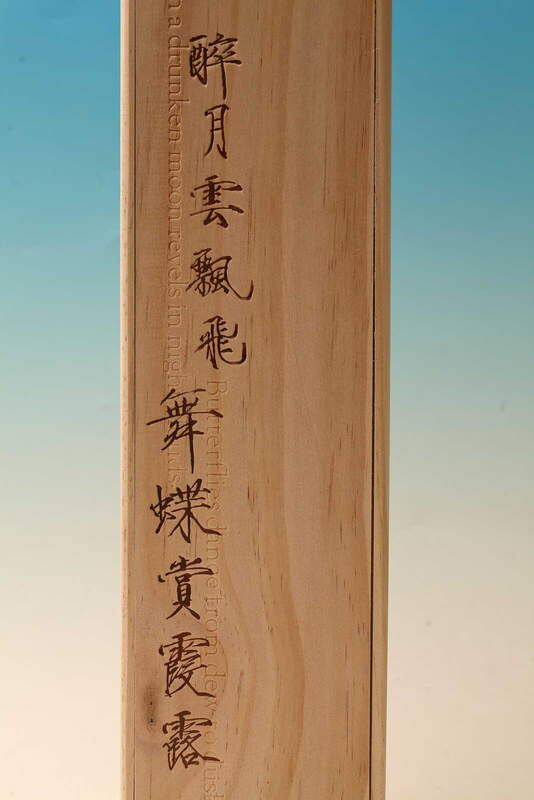 醉月雲飄飛
舞蝶賞霞露
n a drunken moon revels in night
Butterflies dance from dew to dus